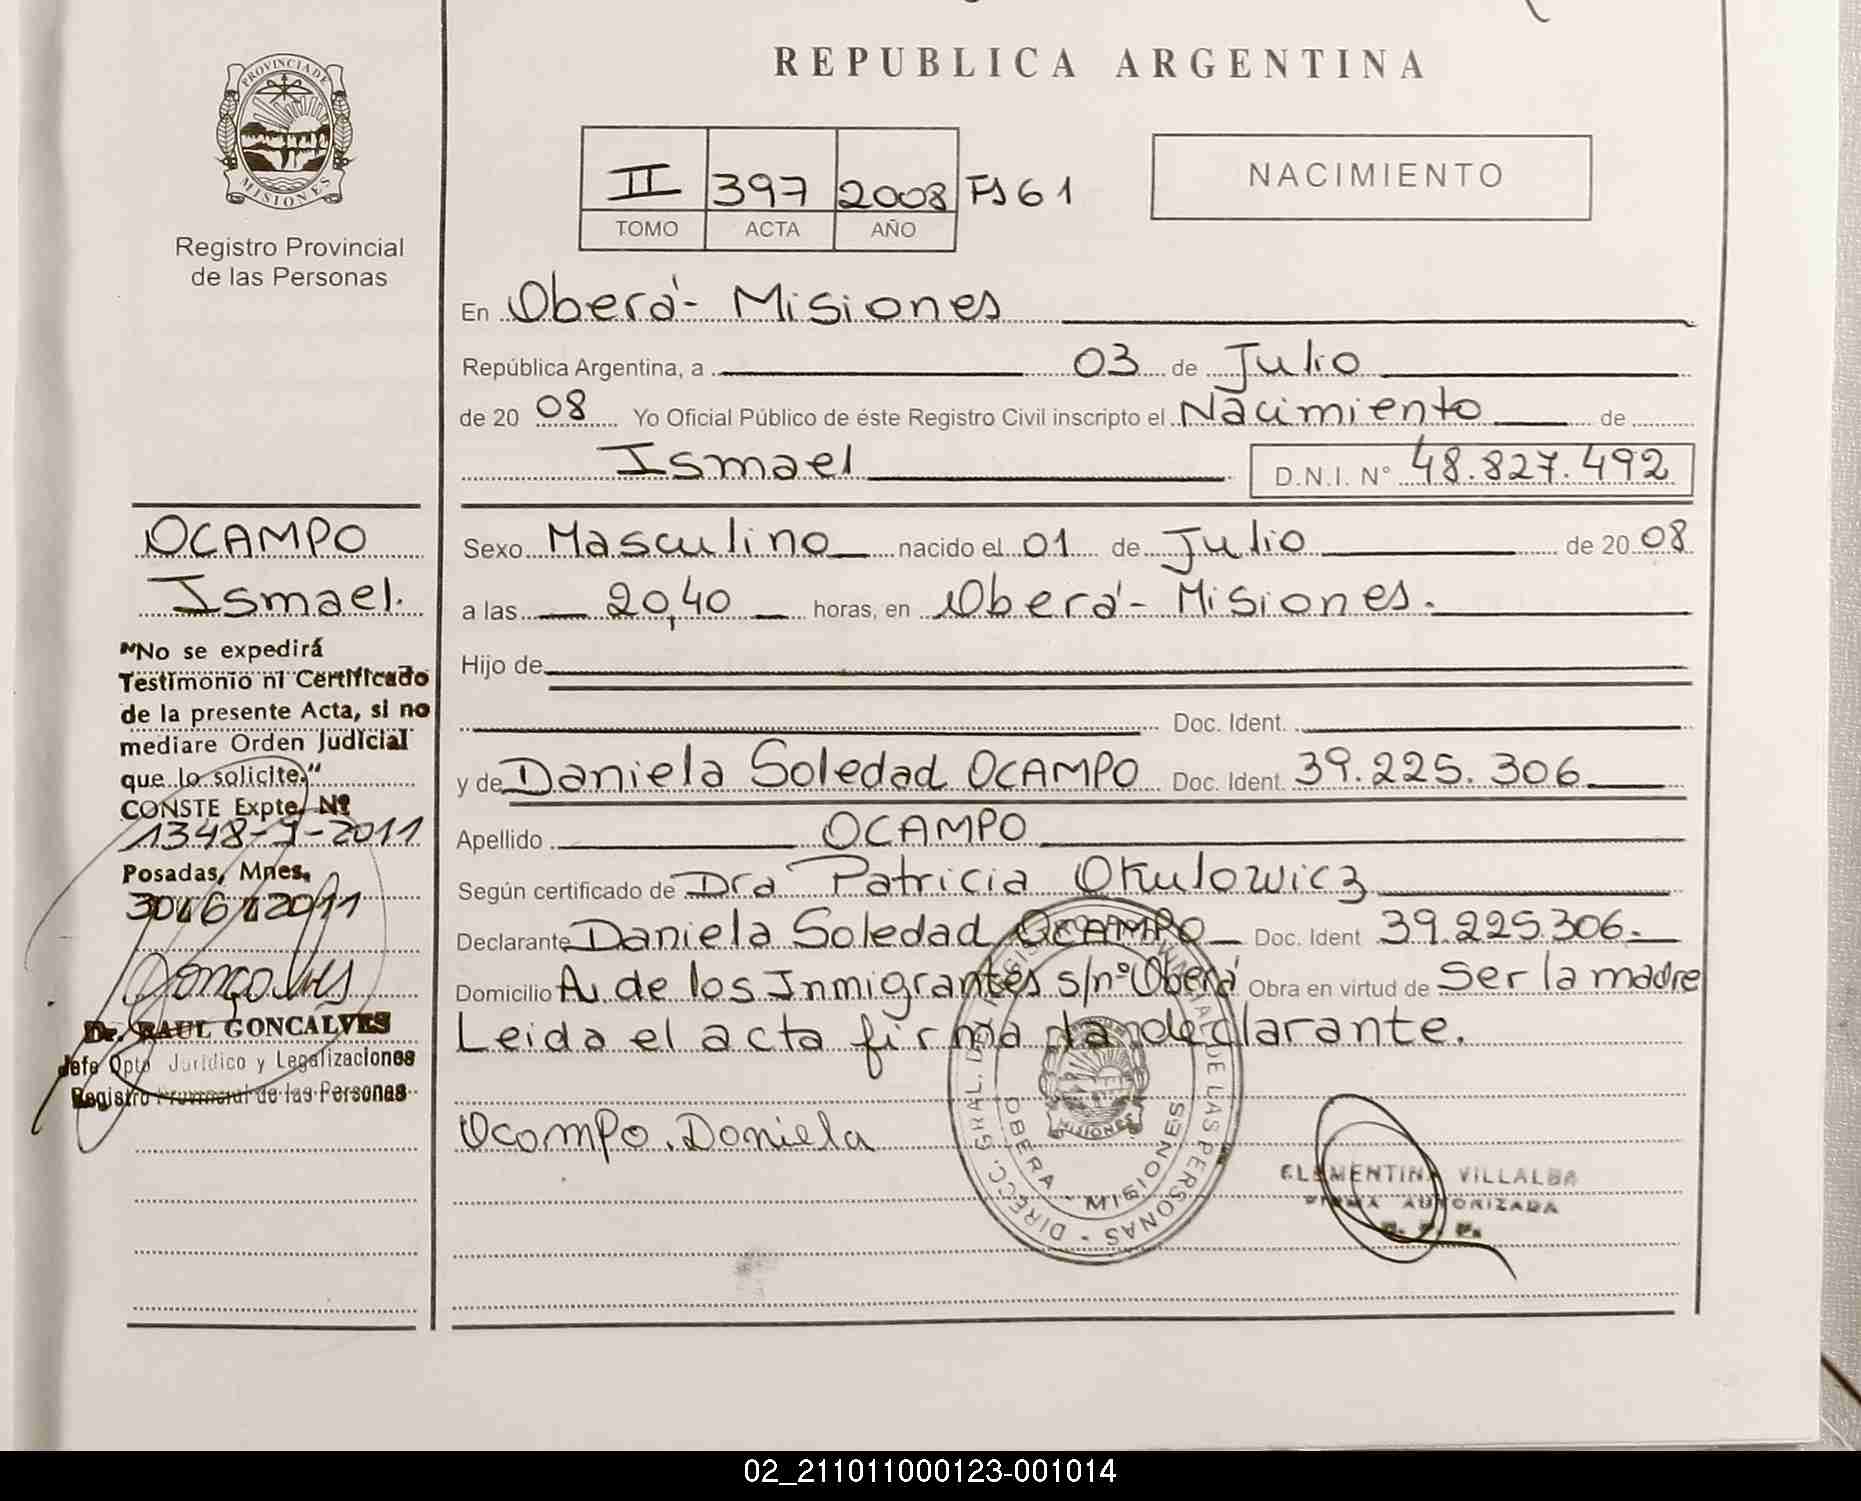 REPUBLICA ARGENTINA
PROVINCIA DE
MISIONES
Registro Provincial
de las Personas
II 397 2008 Fs 61
TOMO ACTA AÑO
NACIMIENTO
En Oberá - Misiones
República Argentina, a 03 de Julio
de 20 08 Yo Oficial Público de éste Registro Civil inscripto el Nacimiento de
Ismael D.N.I. N° 48.827.492
Sexo Masculino nacido el 01 de Julio de 20 08
a las 20,40 horas, en Oberá - Misiones.
Hijo de
Doc. Ident.
y de Daniela Soledad OCAMPO Doc. Ident. 39.225.306
Apellido OCAMPO
Según certificado de Dra Patricia Okulowicz
Declarante Daniela Soledad OCAMPO Doc. Ident 39.225.306.
Domicilio Av de los Inmigrantes s/nº Oberá Obra en virtud de Ser la madre
Leida el acta firma la declarante.
Ocampo. Daniela
OBERA - MISIONES
MISIONES
CLEMENTINA VILLALBA
FIRMA AUTORIZADA
OCAMPO
Ismael.
"No se expedirá
Testimonio ni Certificado
de la presente Acta, si no
mediare Orden Judicial
que lo solicite."
CONSTE Expte. Nº
1348-9-2011
Posadas, Mnes.
30/6/2011
Goncalves
Dr. RAUL GONCALVES
Jefe Dpto Jurídico y Legalizaciones
Registro Provincial de las Personas
02_211011000123-001014